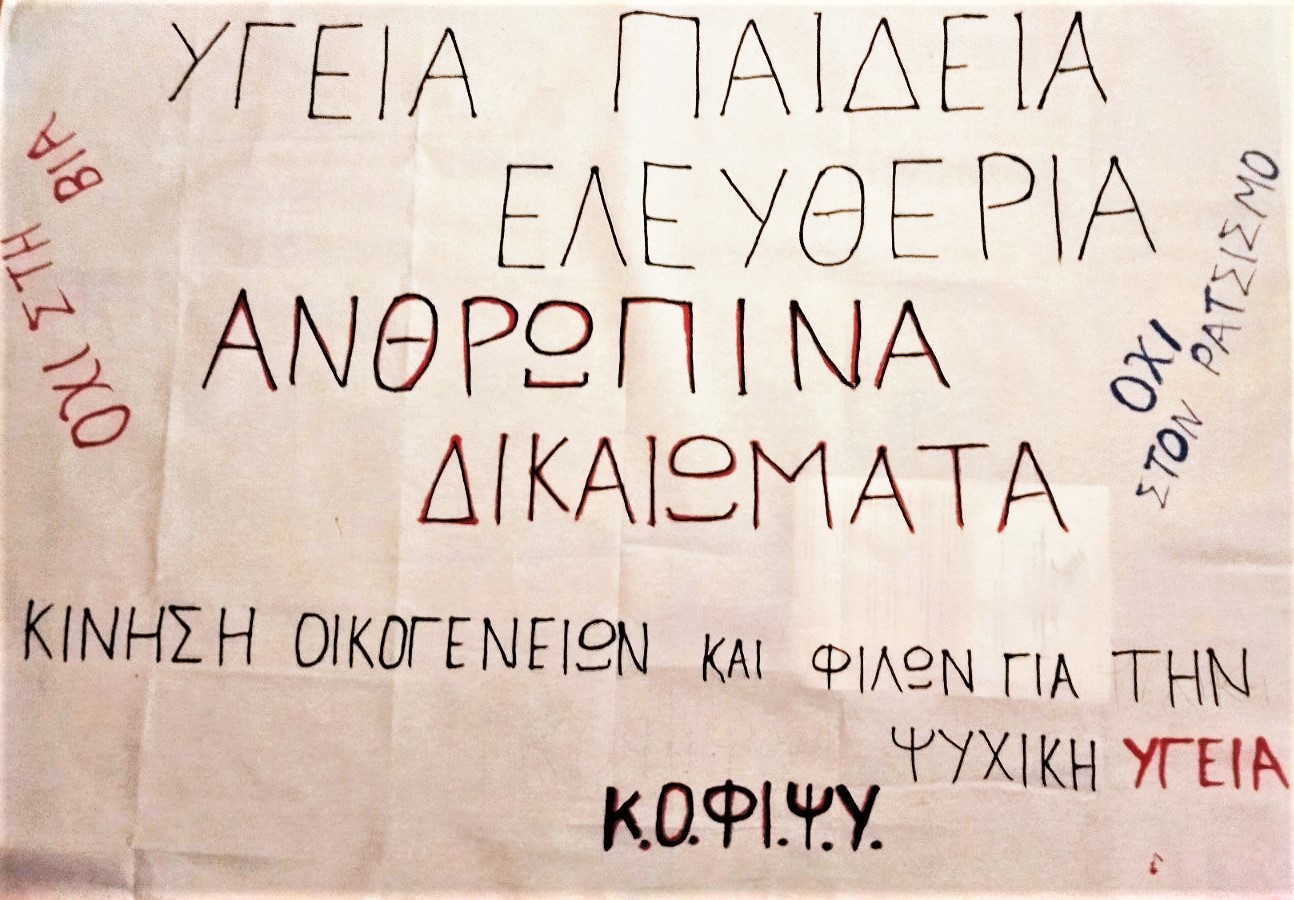 ΥΓΕΙΑ ΠΑΙΔΕΙΑ
ΕΛΕΥΘΕΡΙΑ
ΑΝΘΡΩΠΙΝΑ
ΔΙΚΑΙΩΜΑΤΑ
ΟΧΙ ΣΤΗ ΒΙΑ
ΟΧΙ
ΣΤΟΝ ΡΑΤΣΙΣΜΟ
ΚΙΝΗΣΗ ΟΙΚΟΓΕΝΕΙΩΝ ΚΑΙ ΦΙΛΩΝ ΓΙΑ ΤΗΝ
ΨΥΧΙΚΗ ΥΓΕΙΑ
Κ.Ο.ΦΙ.Ψ.Υ.